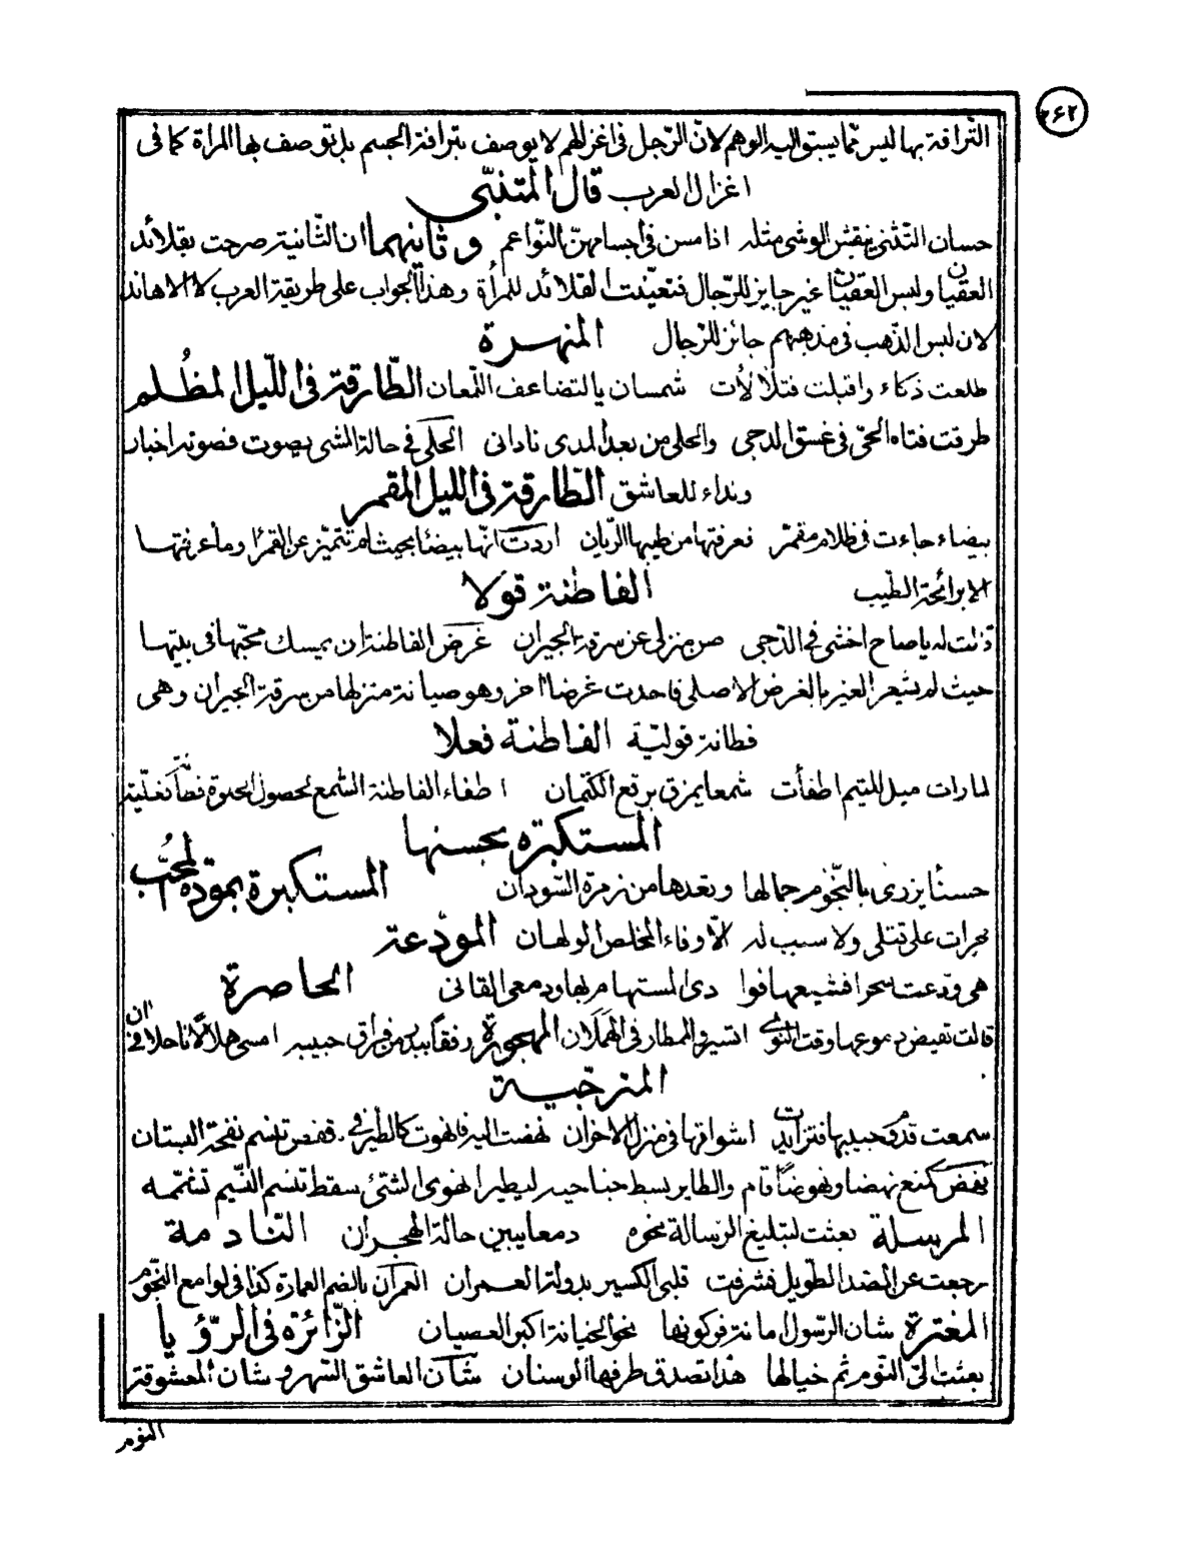 ۲۶۲
الترافة بها ليس مما يسبق اليه الوهم لانّ الرّجل فى اغزالهم لا يوصف بترافة الجسم بل توصف بها المرأة كما فى
اغزال العرب قال المتنبّى
حسان التثنى ينقش الوشى مثله اذا مسن فى اجسامهنّ النّواعم وثانيهما ان الثّانية صرحت بقلائد
العقيان ولبس العقيان غير جايز للرّجال فتعيّنت القلائد للمرأة وهذا الجواب على طريقة العرب لا الاهاند
لان لبس الذّهب فى مذهبهم جائز للرّجال المنهرة
طلعت ذكاء واقبلت فتلالأت شمسان بالتضاعف اللّمعان الطّارقة فى اللّيل المظلم
طرقت فتاه الحىّ فى غسق الدجى والحلى من بعد المدى نادانى الحلى فى حالة المشى يصوت فصوته اخبار
ونداء للعاشق الطّارقة فى الليل المقمر
بيضاء جاءت فى ظلام مقمر فعرفتها من طيبها الرّيان اردت انّها بيضا بحيث لم تتميّز عن القمرا وما عرفتها
الا برائحة الطّيب الفاطنة قولا
قالت له يا صاح اخشى فى الدّجى صن منزلى عن سرقة الجيران غرض الفاطنة ان يمسك محبّها فى بيتها
حيث لم يشعر الغير بالغرض الاصلى فاحدت غرضا اخر وهو صيانة منزلها من سرقة الجيران وهى
فطانة قوليّة الفاطنة فعلا
لما رات ميل المتيم اطفأت شمعا يمزق برقع الكتمان اطفاء الفاطنة الشمع لحصول الخلوة
المستكبرة بحسنها
حسنا يزرى بالنّجوم جمالها وتعدها من زمرة السّودان المستكبرة بمودة المحبّ
جرات على قتلى ولا سبب له الّا وفاء المخلص الولهان المودّعة
هى ودعت سحرا فشيعها فوا دى المستهام بها ودمعى القانى الحاصرة
قالت تفيض دموعها وقت النوى اتسير والمطار فى الهملان المهجورة رفقا ببدر من فراق حبيبه امسى هلالا ناحلا فى ان
المترجّية
سمعت قدوم حبيبها فتزايدت اشواقها فى منزل الاحزان نهضت اليه فانهوت كالطّير فى قفص تنسم نفحة البستان
نهض كمنع نهضا ونهوضا قام والطاير بسط جناحيه ليطير انهوى الشئ سقط تنسم النّسيم تشمّمه
المرسلة بعثت لتبليغ الرّسالة نحوه دمعا يبين حالة الهجران النّادمة
رجعت عن الصد الطّويل فشرفت قلبى الكسير بدولة العمران العمران بالضم العمارة كذا فى لوامع النّجوم
المغترة شان الرّسول امانة فركونها نحو الخيانة اكبر العصيان الزّائرة فى الرّؤيا
بعثت الىّ النّوم ثم خيالها هذا تصدق طرفها الوسنان شان العاشق السّهر وشان المعشوقة
النوم